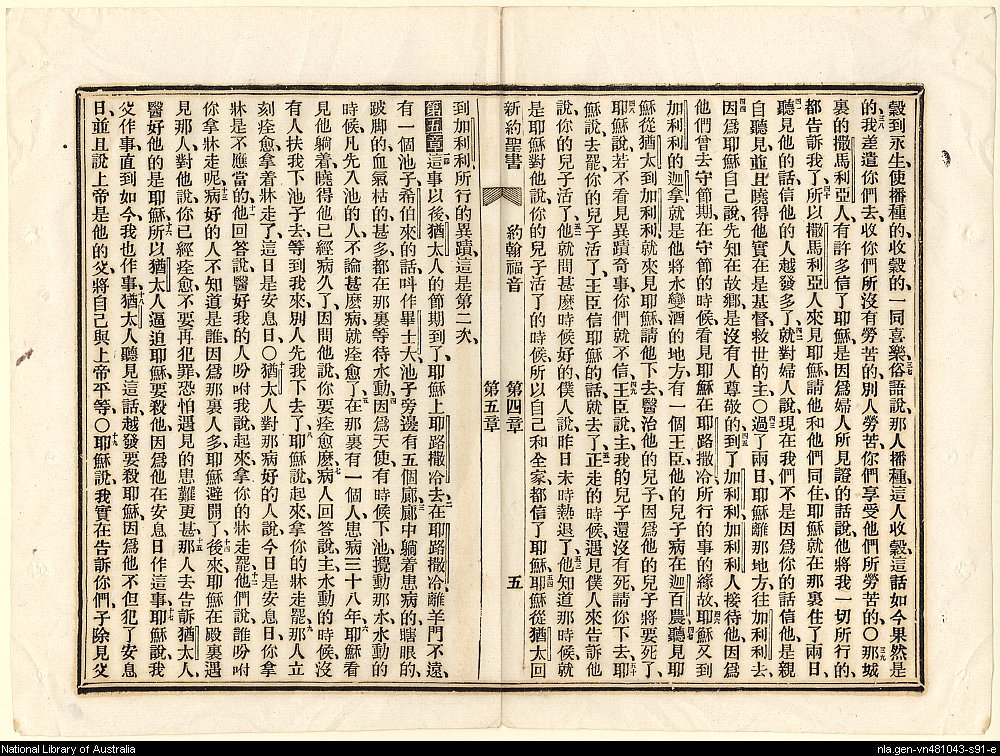 穀到永生、使播種的收穀的一同喜樂、俗語說、那人播種、這人收穀、這話如今果然是
的、我差遣你們去收你們所沒有勞苦的、別人勞苦、你們享受他們所勞苦的、〇那城
裏的撒馬利亞人有許多信了耶穌、是因爲婦人所見證的話、說、他將我一切所行的、
都告訴我了、所以撒馬利亞人來見耶穌、請他和他們同住、耶穌就在那裏住了兩日、
聽見他的話、信他的人越發多了、就對婦人說、現在我們不是因爲你的話信他、是親
自聽見、並且曉得他實在是基督救世的主、〇過了兩日、耶穌離那地方往加利利去、
因爲耶穌自己說、先知在故鄉是沒有人尊敬的、到了加利利、加利利人接待他、因爲
他們曾去守節期、在守節的時候、看見耶穌在耶路撒冷所行的事的緣故、耶穌又到
加利利的迦拿、就是他將水變酒的地方、有一個王臣、他的兒子病在迦百農、聽見耶
穌從猶太到加利利、就來見耶穌、請他下去醫治他的兒子、因爲他的兒子將要死了、
耶穌說、若不看見異蹟奇事、你們就不信、王臣說、主、我的兒子還沒有死、請你下去、耶
穌說、去罷、你的兒子活了、王臣信耶穌的話就去了、正走的時候、遇見僕人來告訴他
說、你的兒子活了、他就問甚麽時候好的、僕人說、昨日未時熱退了、他知道那時候就
是耶穌對他說你的兒子活了的時候、所以自己和全家都信了耶穌、耶穌從猶太回
新約聖書 約翰福音 第四章 第五章 五
到加利利所行的異蹟、這是第二次、
第五章 這事以後、猶太人的節期到了、耶穌上耶路撒冷去、在耶路撒冷離羊門不遠、
有一個池子、希伯來的話呌作畢士大、池子旁邊有五個廊、廊中躺着患病的、瞎眼的、
跛脚的、血氣枯的甚多、都在那裏等待水動、因爲天使有時候下池攪動那水、水動的
時候、凡先入池的人、不論甚麽病就痊愈了、在那裏有一個人患病三十八年、耶穌看
見他躺着、曉得他已經病久了、因問他說、你要痊愈麽、病人回答說、主、水動的時候、沒
有人扶我下池子去、等到我來、別人先我下去了、耶穌說、起來、拿你的牀走罷、那人立
刻痊愈、拿着牀走了、這日是安息日、〇猶太人對那病好的人說、今日是安息日、你拿
牀是不應當的、他回答說、醫好我的人吩咐我說、起來、拿你的牀走罷、他們說、誰吩咐
你拿牀走呢、病好的人不知道是誰、因爲那裏人多、耶穌避開了、後來耶穌在殿裏遇
見那人、對他說、你已經痊愈、不要再犯罪、恐怕遇見的患難更甚、那人去告訴猶太人、
醫好他的是耶穌、所以猶太人逼迫耶穌、要殺他、因爲他在安息日作這事、耶穌說、我
父作事直到如今、我也作事、猶太人聽見這話、越發要殺耶穌、因爲他不但犯了安息
日、並且說上帝是他的父、將自己與上帝平等、〇耶穌說、我實在告訴你們、子除見父
National Library of Australia
nla.gen-vn481043-s91-e